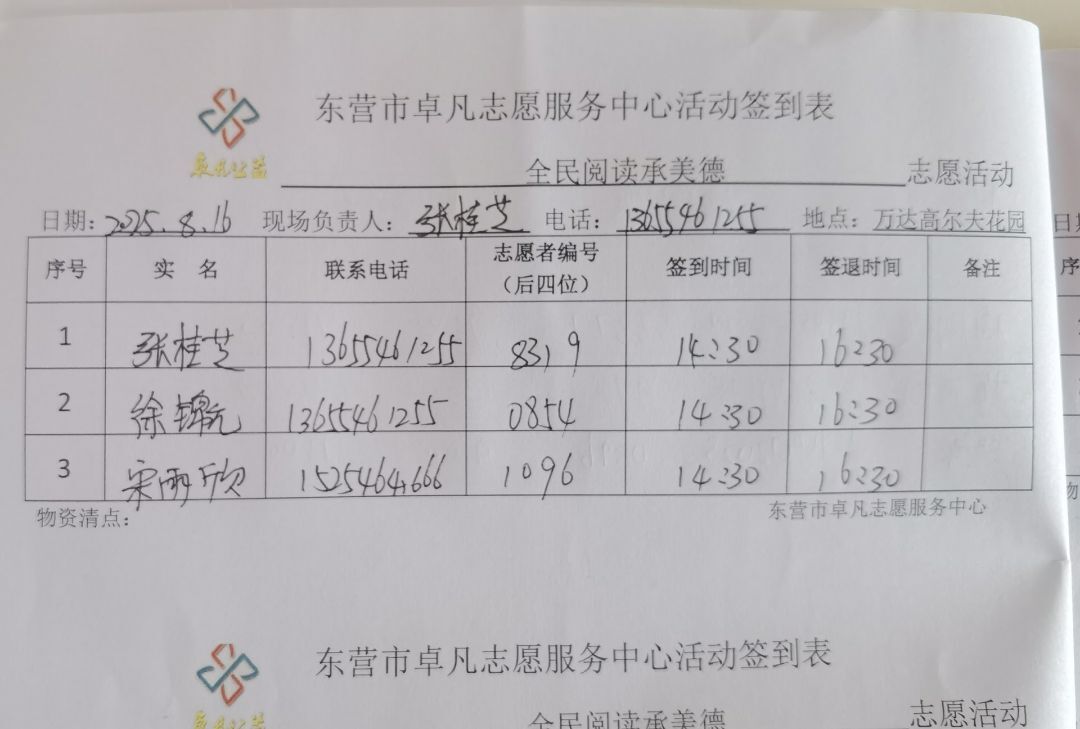 东营市卓凡志愿服务中心活动签到表
卓凡公益
全民阅读承美德 志愿活动
日期：2025.8.16 现场负责人：张桂芝 电话：13655461255 地点：万达高尔夫花园
序号 实 名 联系电话 志愿者编号（后四位） 签到时间 签退时间 备注
1 张桂芝 13655461255 8319 14:30 16:30
2 徐锦元 13655461255 0854 14:30 16:30
3 宋雨欣 15254641666 1096 14:30 16:30
物资清点： 东营市卓凡志愿服务中心
东营市卓凡志愿服务中心活动签到表
卓凡公益
全民阅读承美德 志愿活动
日
序
物